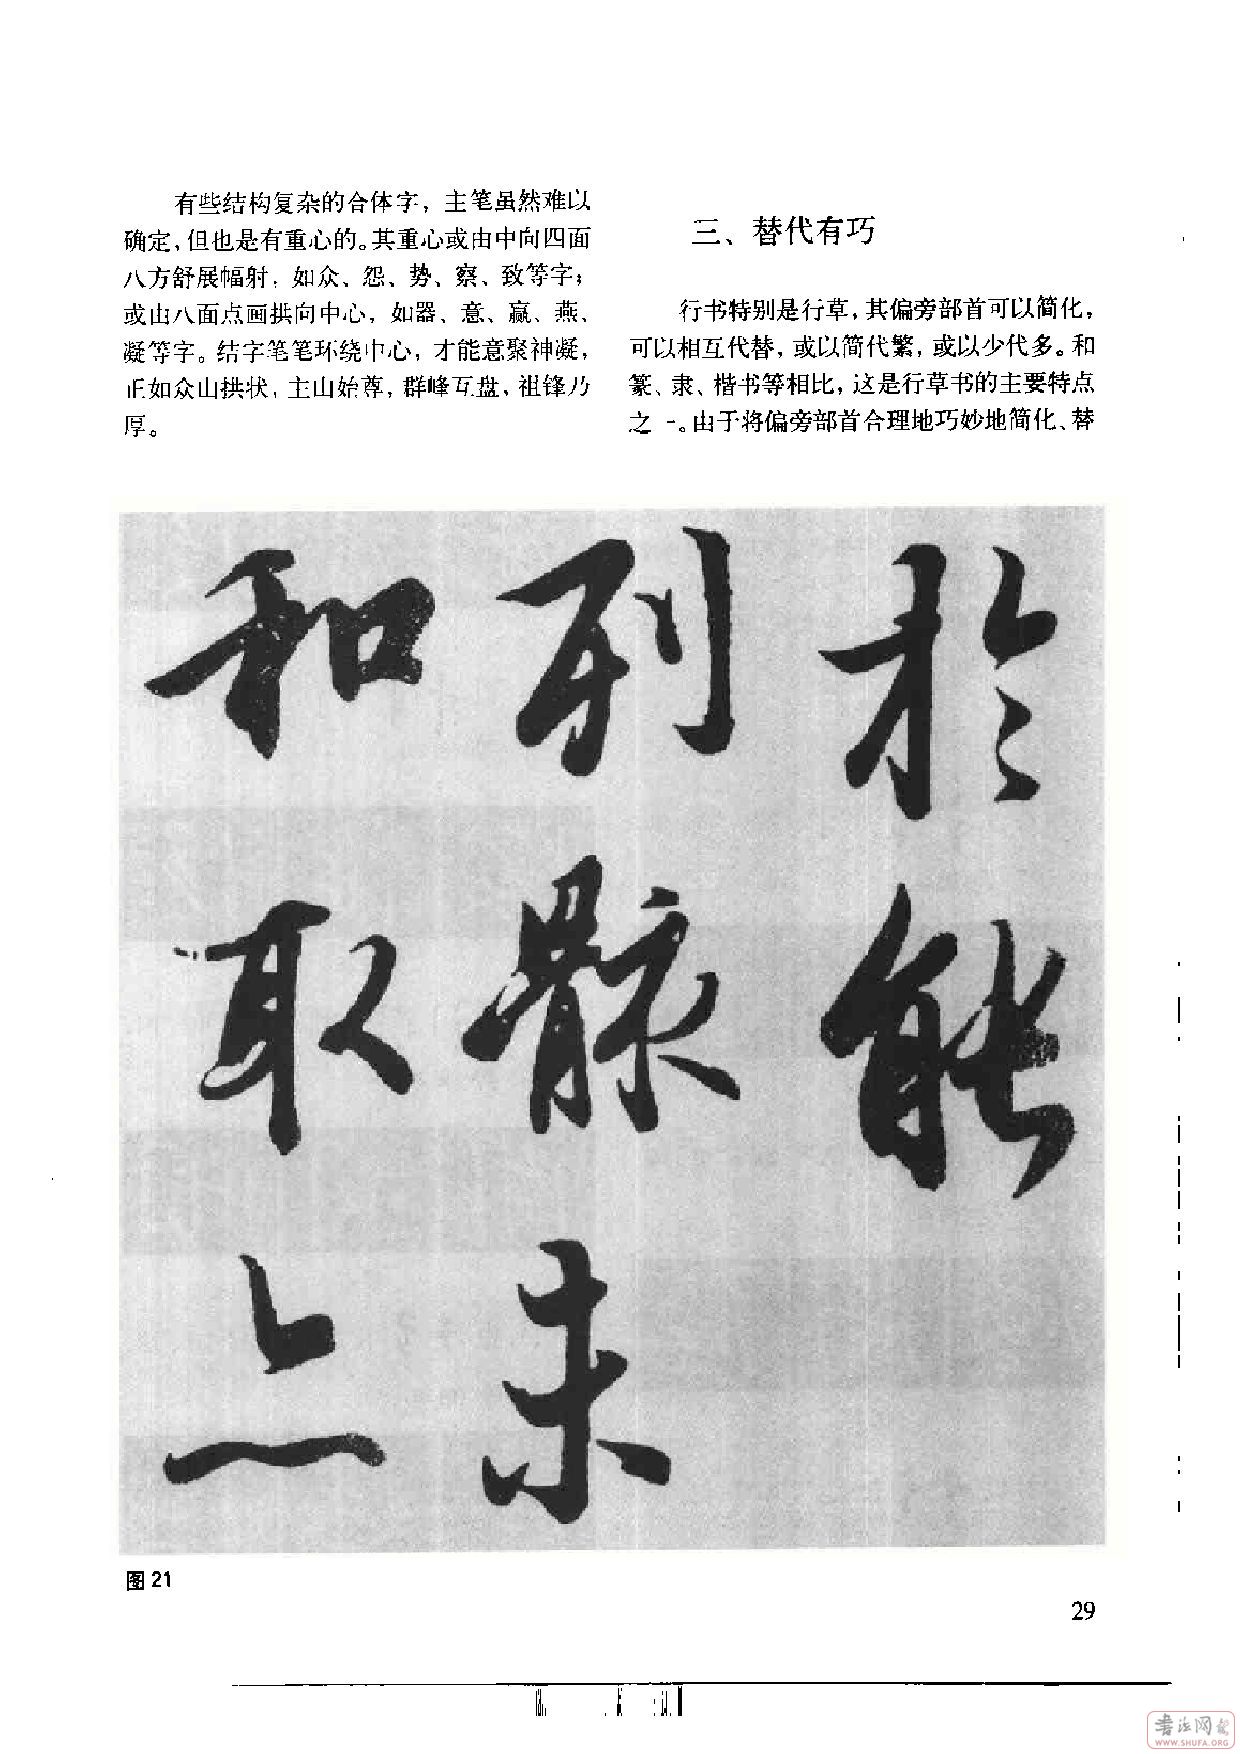 有些结构复杂的合体字，主笔虽然难以
确定，但也是有重心的。其重心或由中向四面
八方舒展幅射，如众、怨、势、察、致等字；
或由八面点画拱向中心，如器、意、赢、燕、
凝等字。结字笔笔环绕中心，才能意聚神凝，
正如众山拱状，主山始尊，群峰互盘，祖锋乃
厚。
三、替代有巧
行书特别是行草，其偏旁部首可以简化，
可以相互代替，或以简代繁，或以少代多。和
篆、隶、楷书等相比，这是行草书的主要特点
之一。由于将偏旁部首合理地巧妙地简化、替
於能
列骸未
和取上
图21
29
书法网
WWW.SHUFA.ORG